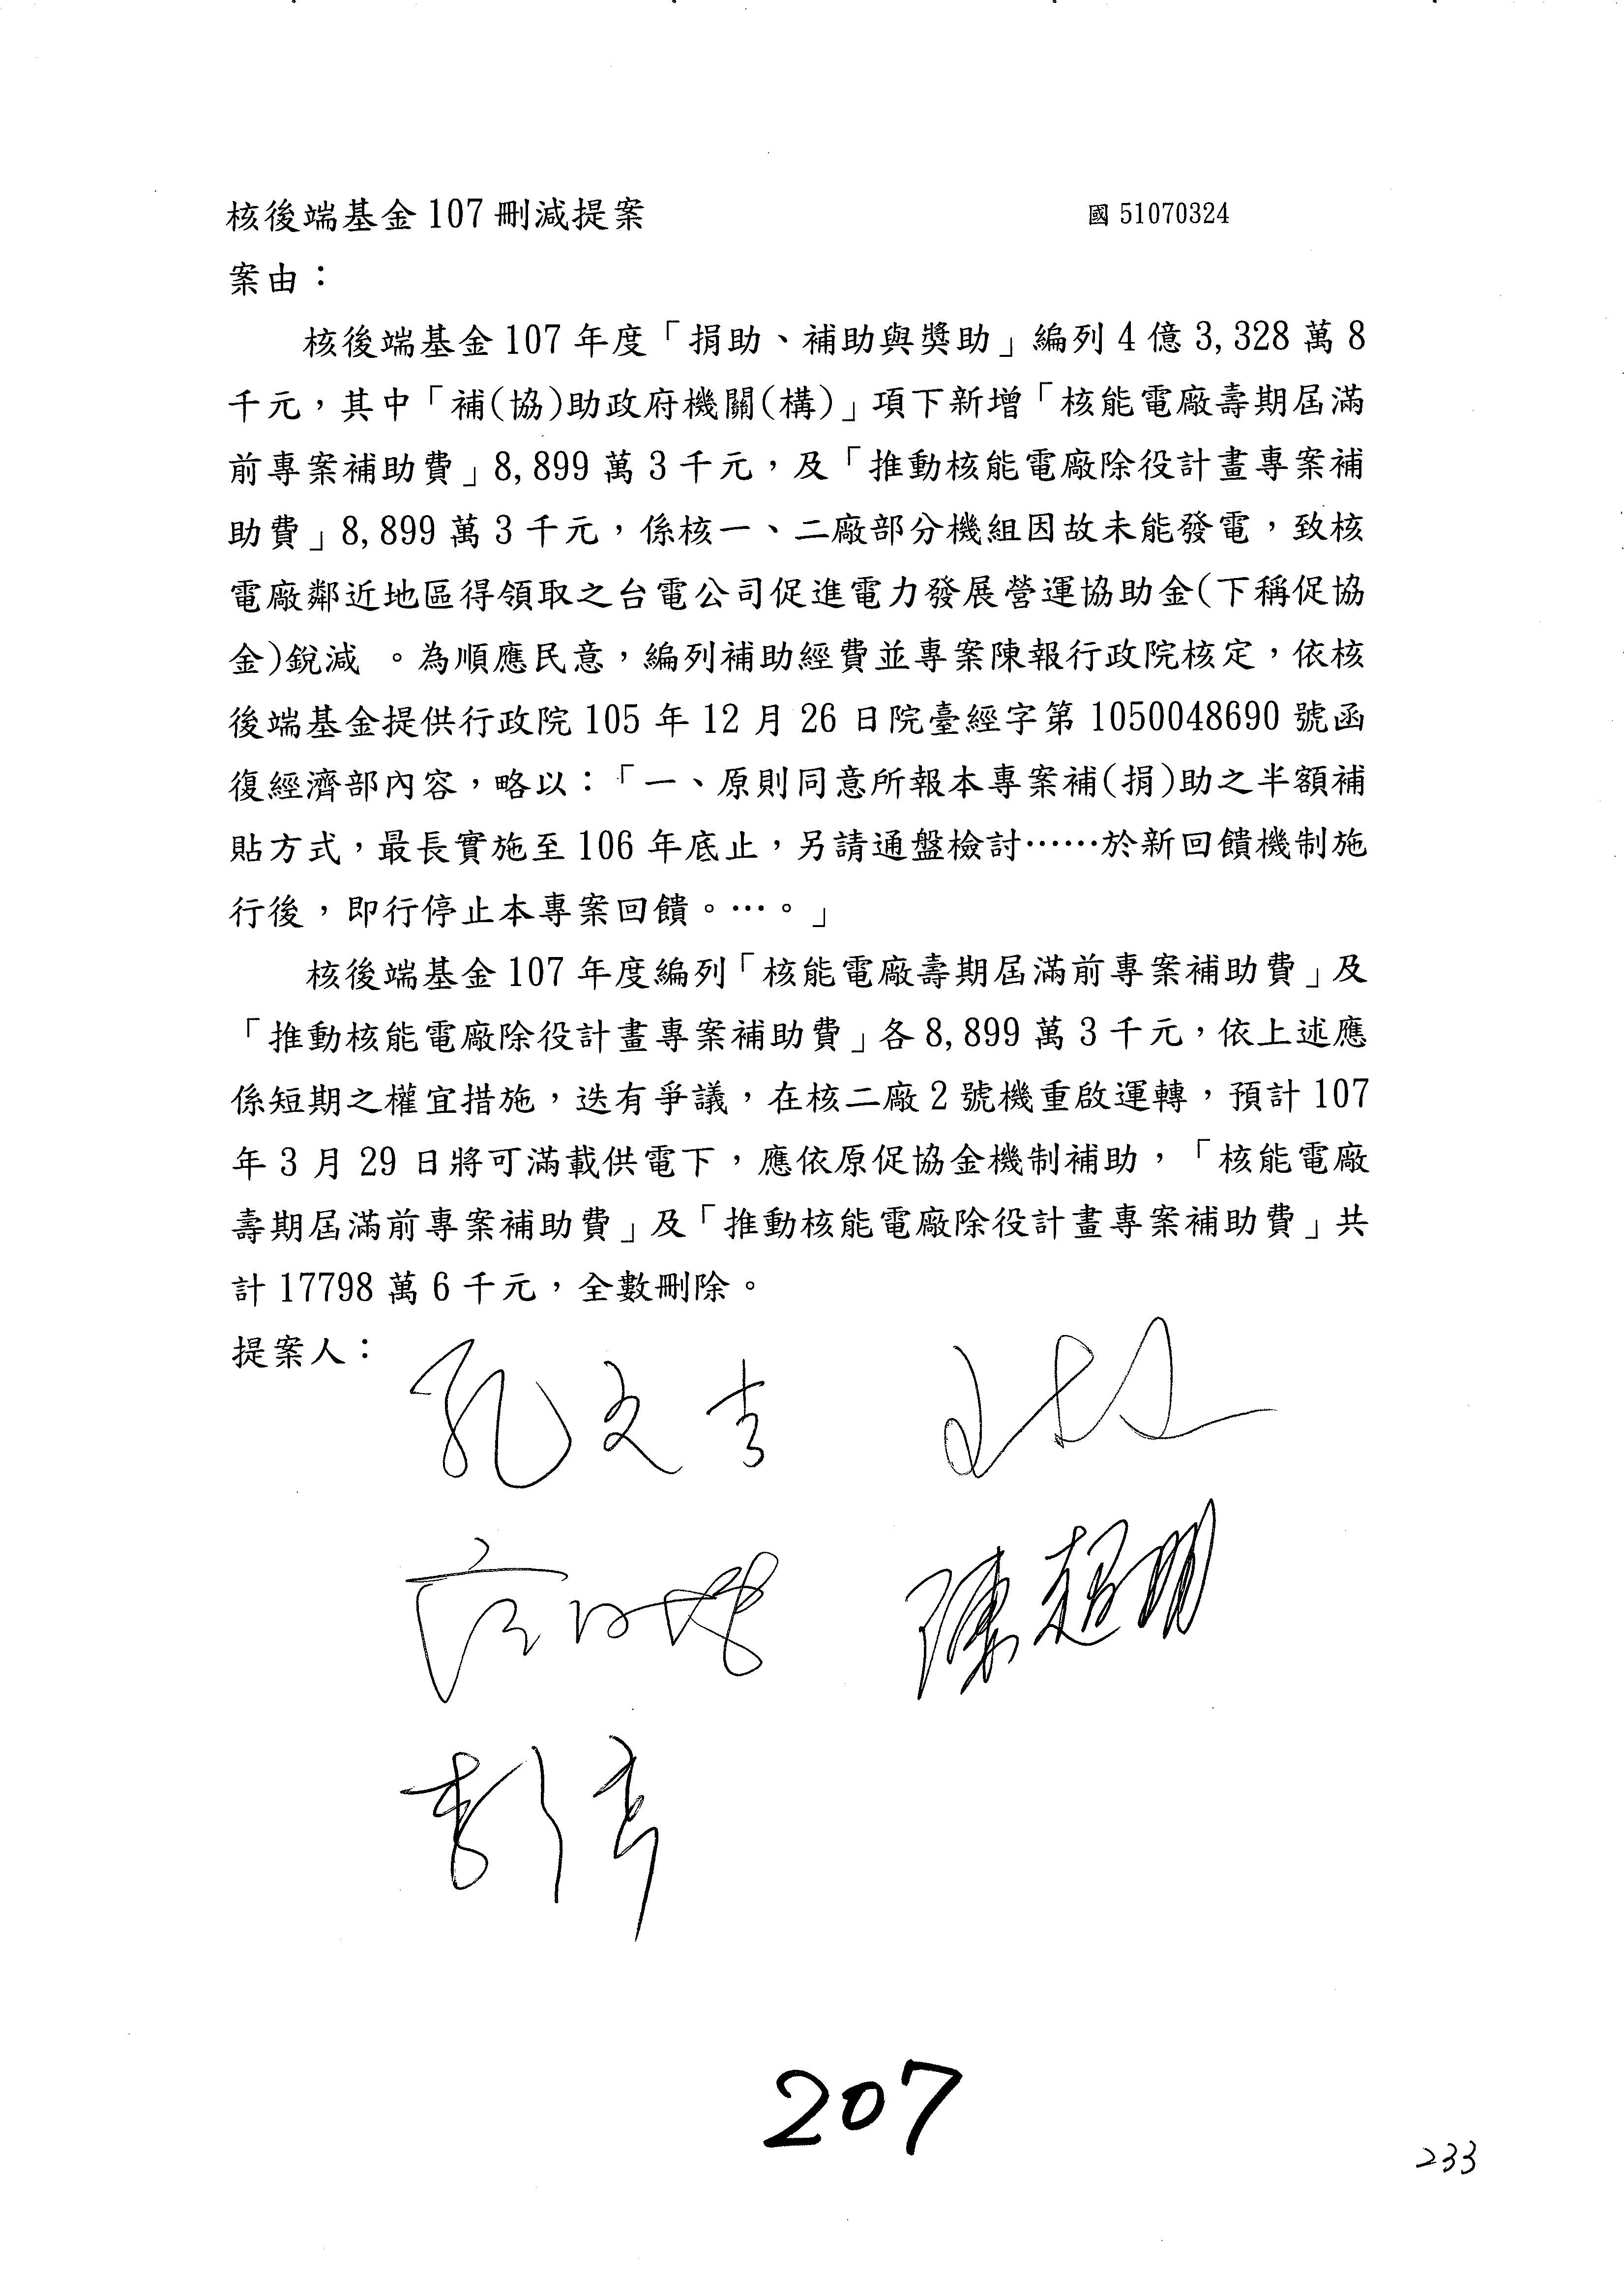 核後端基金 107 刪減提案 國 51070324
案由：
核後端基金 107 年度「捐助、補助與獎助」編列 4 億 3,328 萬 8
千元，其中「補(協)助政府機關(構)」項下新增「核能電廠壽期屆滿
前專案補助費」8,899 萬 3 千元，及「推動核能電廠除役計畫專案補
助費」8,899 萬 3 千元，係核一、二廠部分機組因故未能發電，致核
電廠鄰近地區得領取之台電公司促進電力發展營運協助金(下稱促協
金)銳減 。為順應民意，編列補助經費並專案陳報行政院核定，依核
後端基金提供行政院 105 年 12 月 26 日院臺經字第 1050048690 號函
復經濟部內容，略以：「一、原則同意所報本專案補(捐)助之半額補
貼方式，最長實施至 106 年底止，另請通盤檢討……於新回饋機制施
行後，即行停止本專案回饋。…。」
核後端基金 107 年度編列「核能電廠壽期屆滿前專案補助費」及
「推動核能電廠除役計畫專案補助費」各 8,899 萬 3 千元，依上述應
係短期之權宜措施，迭有爭議，在核二廠 2 號機重啟運轉，預計 107
年 3 月 29 日將可滿載供電下，應依原促協金機制補助，「核能電廠
壽期屆滿前專案補助費」及「推動核能電廠除役計畫專案補助費」共
計 17798 萬 6 千元，全數刪除。
提案人：
孔文吉
陳超明
207
233